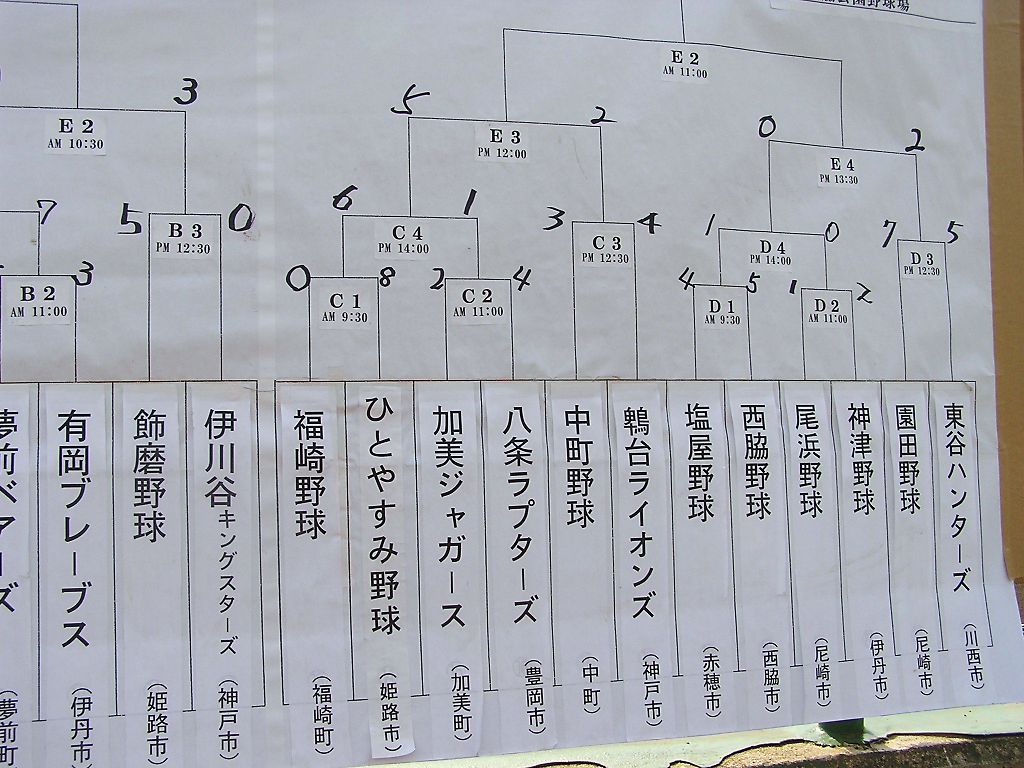 野球場
E 2
AM 11:00
3
E 2
AM 10:30
5
E 3
PM 12:00
2
0
E 4
PM 13:30
2
7
5
B 3
PM 12:30
0
6
C 4
PM 14:00
1
3
C 3
PM 12:30
4
1
D 4
PM 14:00
0
7
D 3
PM 12:30
5
3
B 2
AM 11:00
0
C 1
AM 9:30
8
2
C 2
AM 11:00
4
4
D 1
AM 9:30
5
1
D 2
AM 11:00
2
夢前ベアーズ
(夢前町
有岡ブレーブス
(伊丹市)
飾磨野球
(姫路市)
伊川谷キングスターズ
(神戸市)
福崎野球
(福崎町)
ひとやすみ野球
(姫路市)
加美ジャガース
(加美町)
八条ラプターズ
(豊岡市)
中町野球
(中町)
鶴台ライオンズ
(神戸市)
塩屋野球
(赤穂市)
西脇野球
(西脇市)
尾浜野球
(尼崎市)
神津野球
(伊丹市)
園田野球
(尼崎市)
東谷ハンターズ
(川西市)